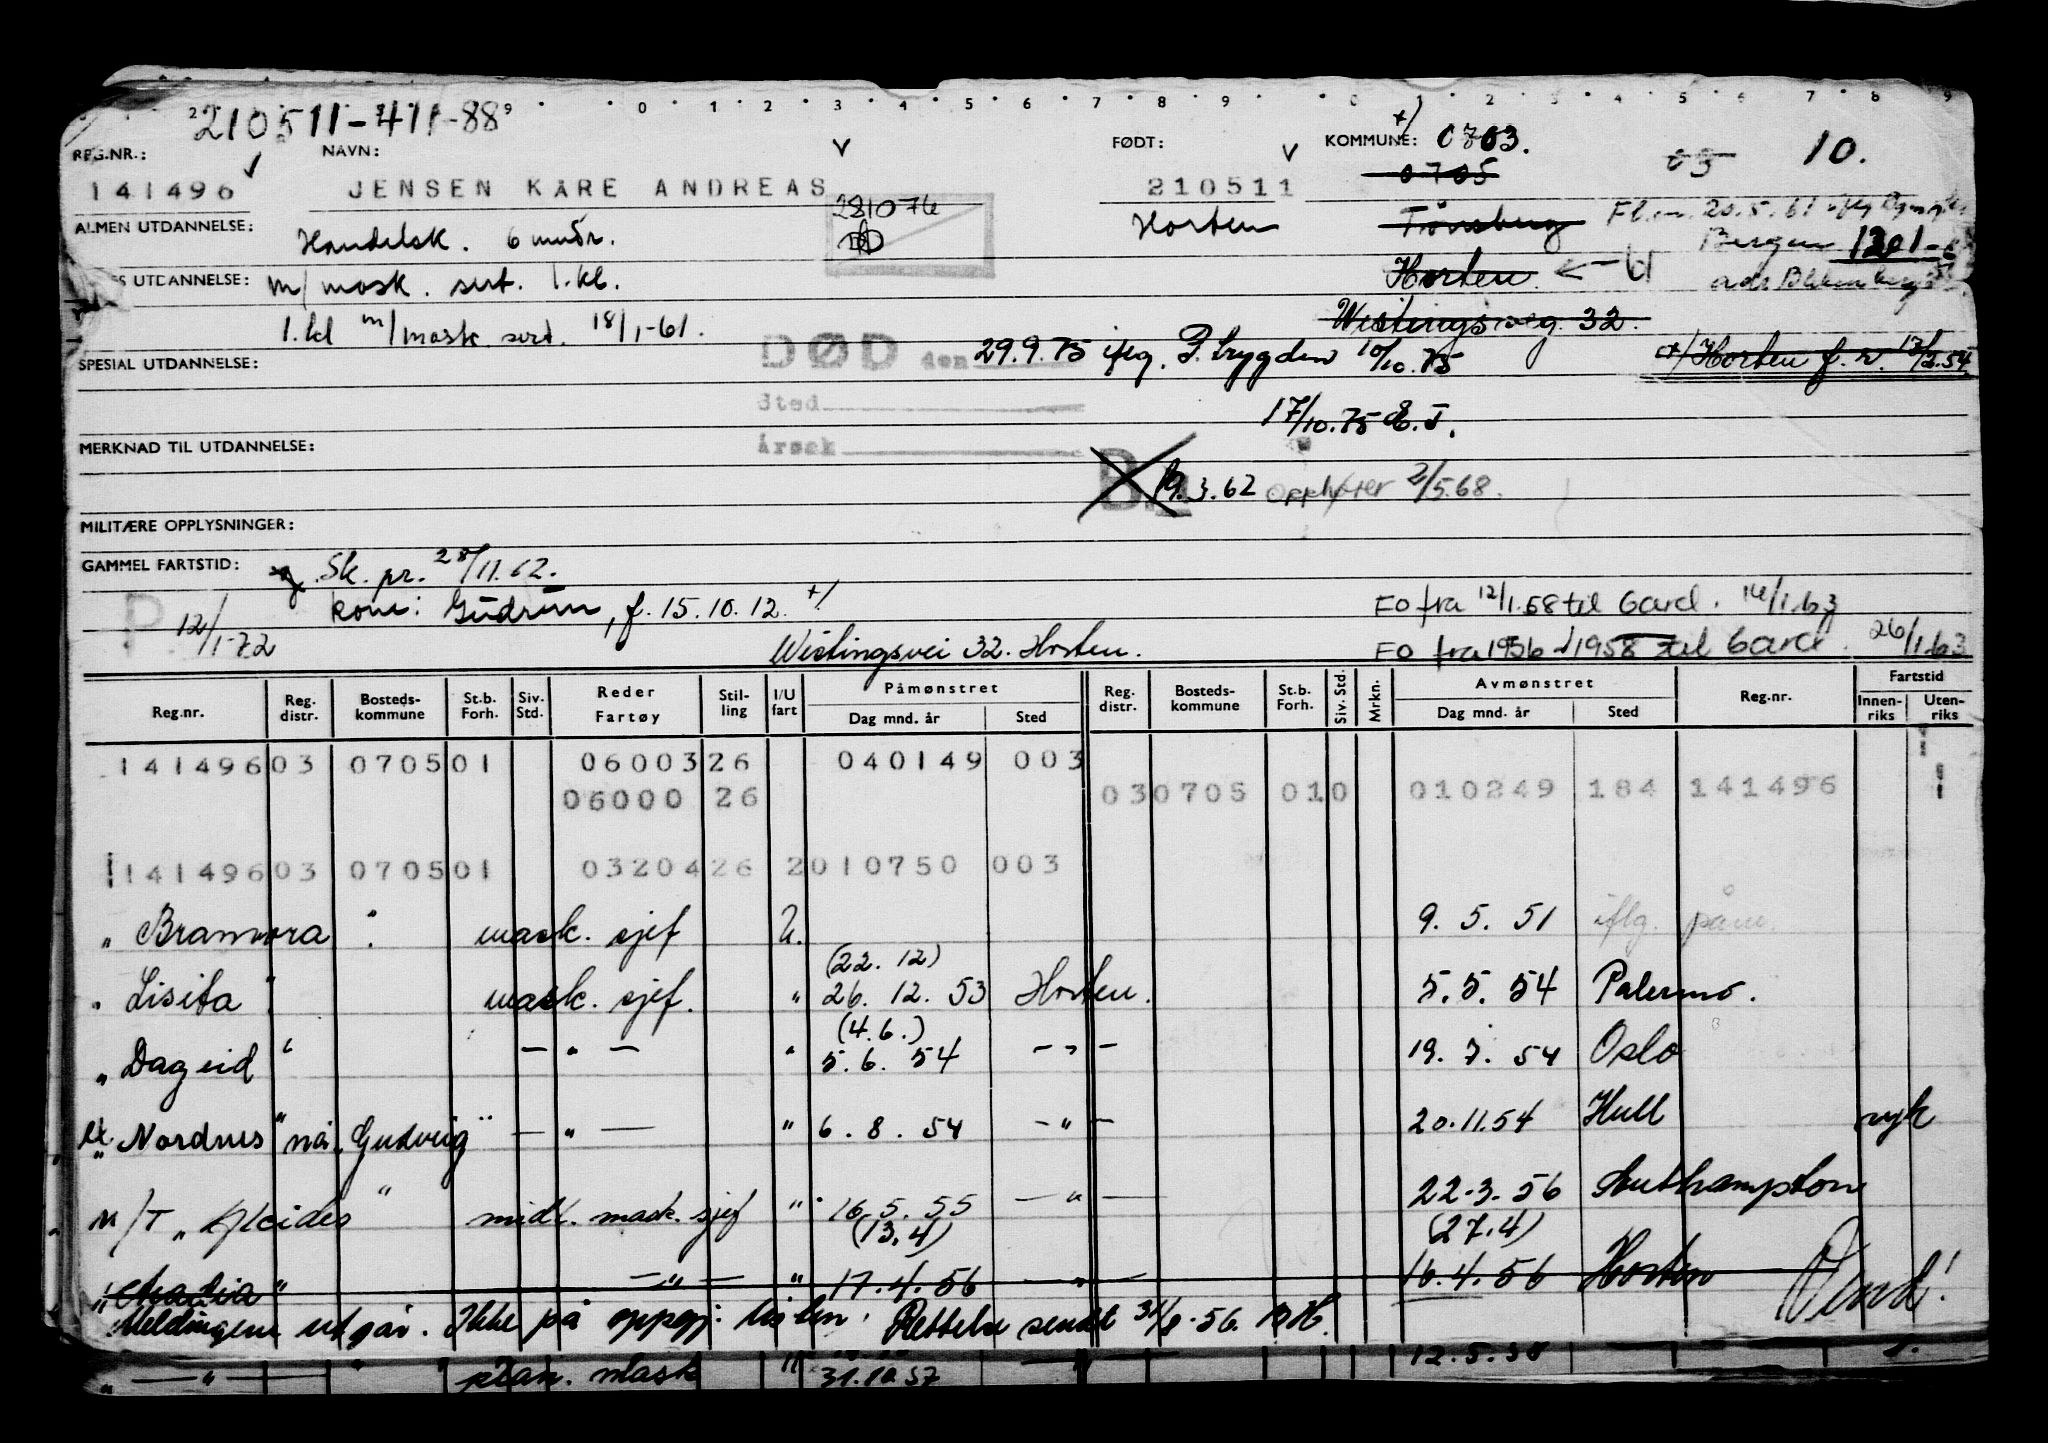 210511-411-88
REG.NR.: NAVN: FØDT: KOMMUNE: 0703. 03 10.
141496 JENSEN KÅRE ANDREAS 210511 0705
281074
ALMEN UTDANNELSE: Handelsk. 6 mndr. Horten Tønsberg
Bergen 1201
UTDANNELSE: m/mask. sert. 1.kl. Horten
1.kl m/mask sert. 18/1-61. Wistingsveg. 32.
SPESIAL UTDANNELSE: DØD den 29.9.75 iflg. P.trygden 10/10.75 Horten f. n. 13/2.54
Sted
17/10.75
MERKNAD TIL UTDANNELSE: Årsak
19.3.62 Opphører 2/5.68.
MILITÆRE OPPLYSNINGER:
GAMMEL FARTSTID: Sk. pr. 28/11.62.
P 12/1-72 kone: Gudrun, f. 15.10.12. FO fra 12/1.58 til Gard. 14/1.63
Wistingsvei 32. Horten. FO fra 1956-1958 til Gard. 26/1.63
Reg.nr. Reg. distr. Bosteds-kommune St.b. Forh. Siv. Std. Reder Fartøy Stil-ling I/U fart Påmønstret Dag mnd. år Sted Reg. distr. Bosteds-kommune St.b. Forh. Siv. Std. Mrkn. Avmønstret Dag mnd. år Sted Reg.nr. Fartstid Innen-riks Uten-riks
141496 03 0705 01 06003 26 040149 003
06000 26 03 0705 010 010249 184 141496
141496 03 0705 01 03204 26 2 010750 003
" Bramora " mask. sjef U. 9. 5. 51 iflg. påm.
(22. 12)
" Lisita " mask. sjef. " 26. 12. 53 Horten. 5. 5. 54 Palermo.
(4. 6.)
" Dageid " — " — " 5. 6. 54 — " — 19. 7. 54 Oslo
" Nordnes " nå. "Gudveig" — " — " 6. 8. 54 — " — 20.11.54 Hull
M/T " " midl. mask. sjef " 16. 5. 55 — " — 22-3-56 Southampton
(13.4) (27.4)
" " — " — " 17.4.56 — " — 16.4.56 Horten Vend!
Meldingene utgår. Ikke på oppgj. listen. Rettelse sendt
12.5.58
" — " — " mask " 31.10.57 — " —